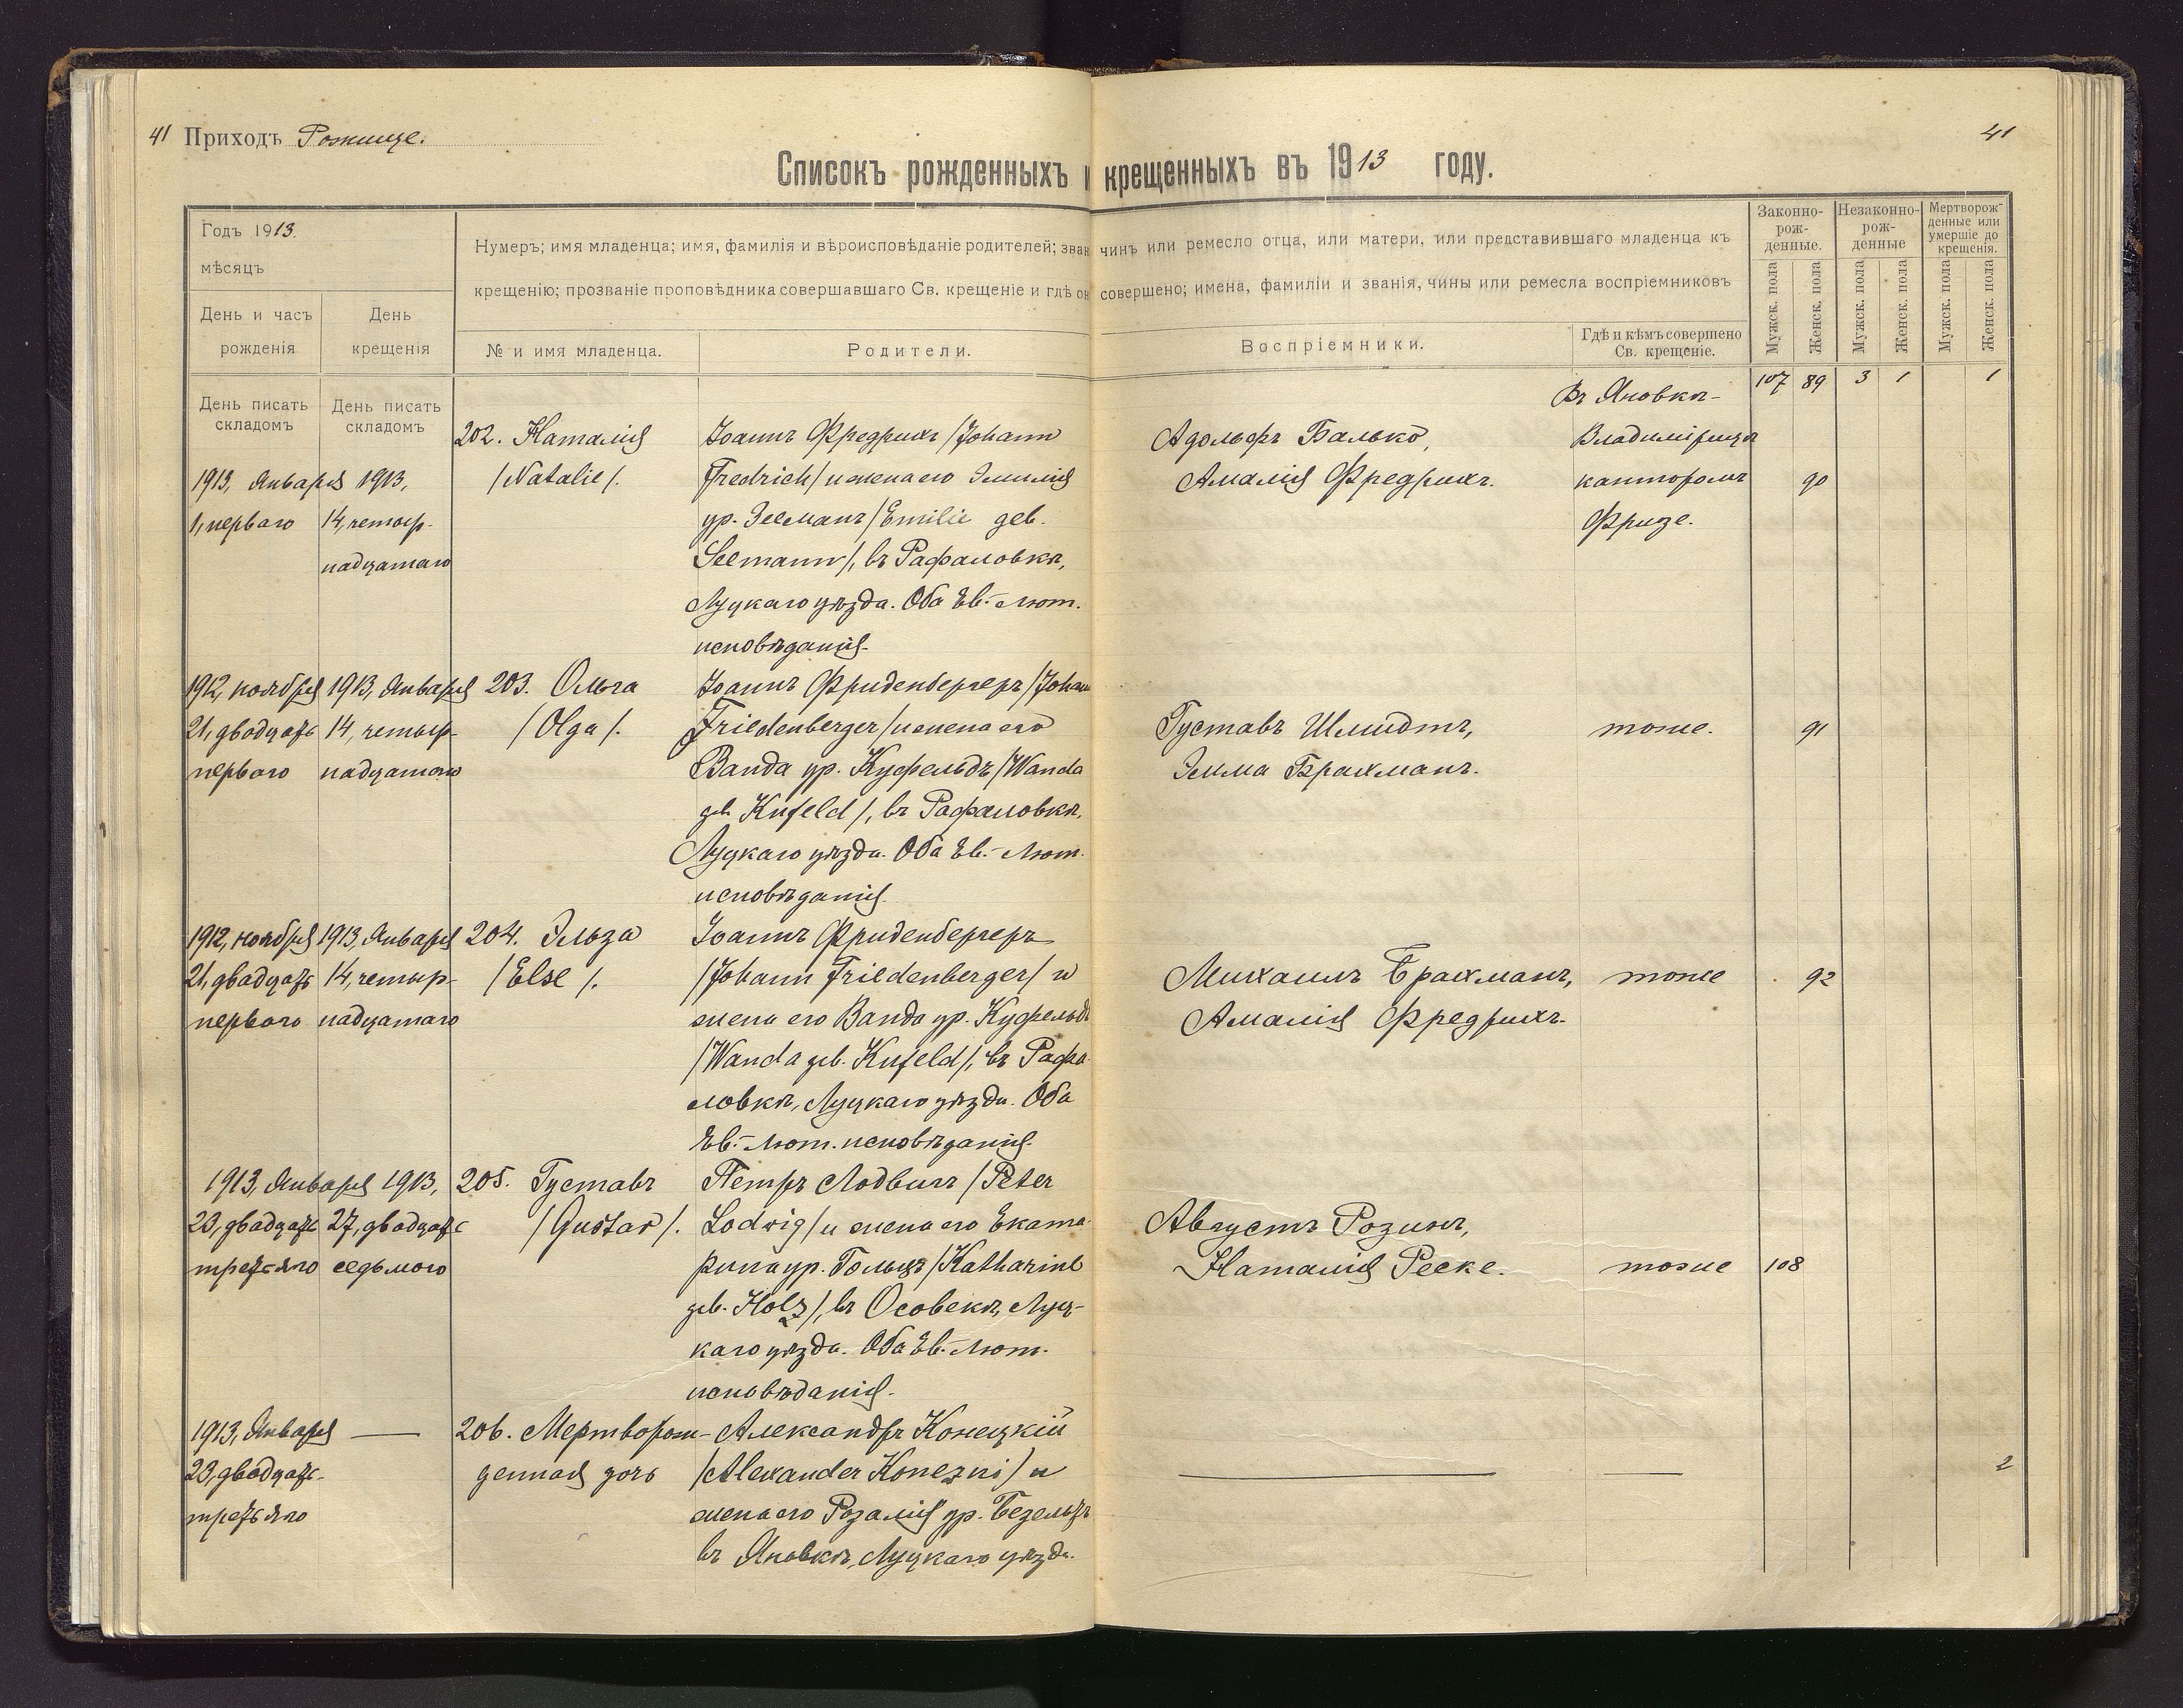 41 Приходъ Рожище.
41
Списокъ рожденныхъ и крещенныхъ въ 1913 году.
Годъ 1913.
мѣсяцъ
День и часъ рожденія
День крещенія
Нумеръ; имя младенца; имя, фамилія и вѣроисповѣданіе родителей; зван чинъ или ремесло отца, или матери, или представившаго младенца къ
крещенію; прозваніе проповѣдника совершавшаго Св. крещеніе и гдѣ он совершено; имена, фамиліи и званія, чины или ремесла воспріемниковъ
№ и имя младенца.
Родители.
Воспріемники.
Гдѣ и кѣмъ совершено
Св. крещеніе.
Законно-
рож-
денные.
Незаконно-
рож-
денные
Мертворож-
денные или
умершіе до
крещенія.
Мужск. пола
Женск. пола
Мужск. пола
Женск. пола
Мужск. пола
Женск. пола
День писать
складомъ
День писать
складомъ
107 89 3 1 1
1913, Января
1, перваго
1913,
14, четыр-
надцатаго
202. Наталія
/Natalie/.
Іоаннъ Фредрихъ /Johann
Fredrich/ и жена его Эмилія
ур. Зееманъ /Emilie geb.
Seemann/, въ Рафаловкѣ,
Луцкаго уѣзда. Оба Ев.-лют.
исповѣданія.
Адольфъ Балько,
Амалія Фредрихъ.
Въ Яновкѣ-
Владимірцѣ
канторомъ
Фризе.
90
1912, ноября
21, двадцать
перваго
1913, Января
14, четыр-
надцатаго
203. Ольга
/Olga/.
Іоаннъ Фриденбергеръ /Johann
Friedenberger/ и жена его
Ванда ур. Куфельдъ /Wanda
geb. Kufeld/, въ Рафаловкѣ,
Луцкаго уѣзда. Оба Ев.-Лют.
исповѣданія.
Густавъ Шмидтъ,
Эмма Брахманъ.
тоже.
91
1912, ноября
21, двадцать
перваго
1913, Января
14, четыр-
надцатаго
204. Эльза
/Else/.
Іоаннъ Фриденбергеръ
/Johann Friedenberger/ и
жена его Ванда ур. Куфельдъ
/Wanda geb. Kufeld/, въ Рафа-
ловкѣ, Луцкаго уѣзда. Оба
Ев.-Лют. исповѣданія.
Михаилъ Брахманъ,
Амалія Фредрихъ.
тоже
92
1913, Января
23, двадцать
третьяго
1913,
27, двадцать
седьмого
205. Густавъ
/Gustav/.
Петръ Лодвигъ /Peter
Lodwig/ и жена его Екате-
рина ур. Гольцъ /Katharine
geb. Holz/, въ Осовекѣ, Луц-
каго уѣзда. Оба Ев.-Лют.
исповѣданія.
Августъ Розинъ,
Наталія Реске.
тоже
108
1913, Января
23, двадцать-
третьяго
—
206. Мертворож-
денная дочь
Александръ Конецкій
/Alexander Konezki/ и
жена его Розалія ур. Безельтъ
въ Яновкѣ, Луцкаго уѣзда.
2